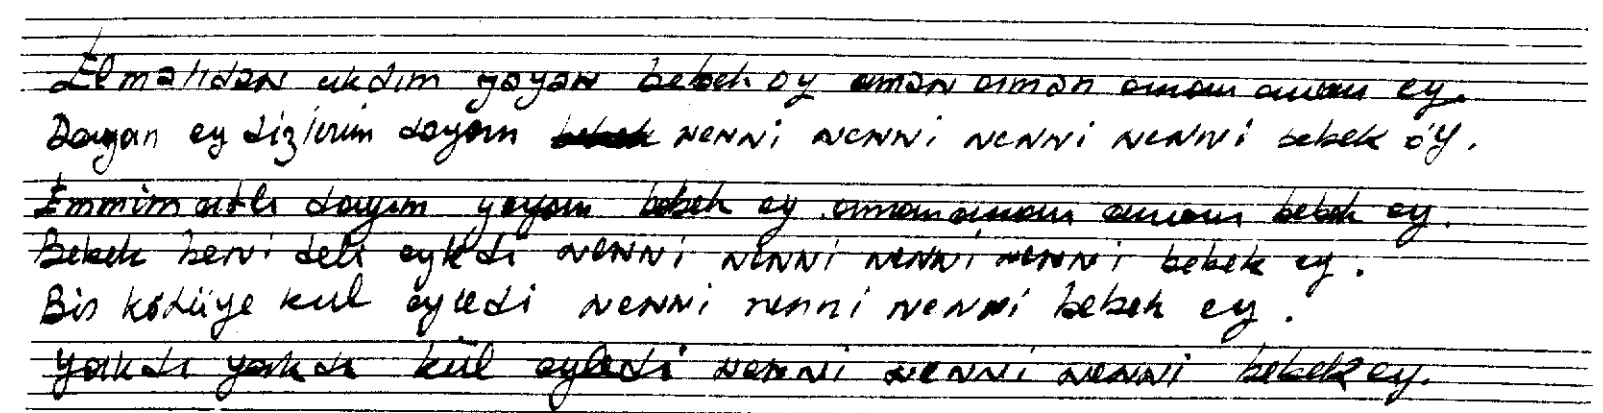 Elmalıdan çıkdım yayan bebek oy aman aman aman aman ey.
Dayan ey dizlerim dayan nenni nenni nenni nenni bebek oy.
Emmim atlı dayım yayan bebek ey aman aman aman bebek ey.
Bebek beni deli eyledi nenni nenni nenni nenni bebek ey.
Bir kötüye kul eyledi nenni nenni nenni bebek ey.
yakdı yakdı kül eyledi nenni nenni nenni bebek ey.